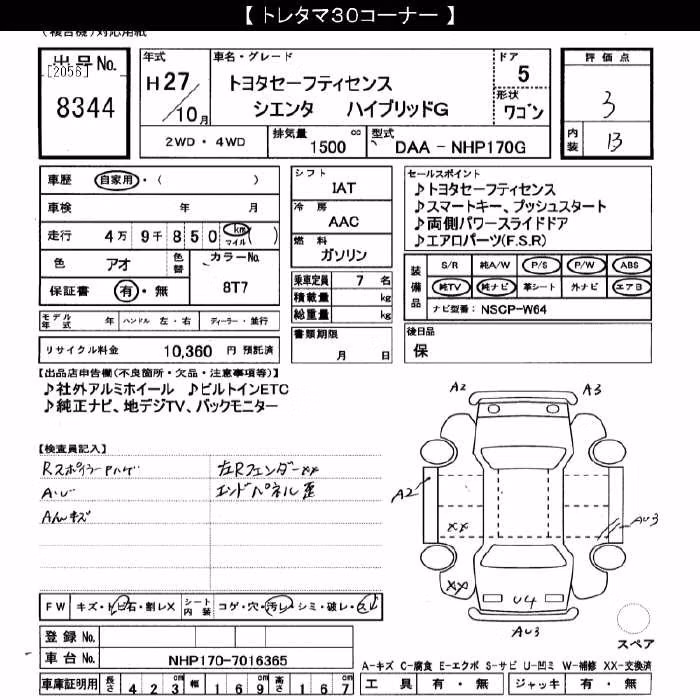 【 トレタマ30コーナー 】
(複合機)対応用紙
出品No.
[2056]
8344
年式
H27/10月
車名・グレード
トヨタセーフティセンス
シエンタ ハイブリッドG
ドア
5
形状
ワゴン
評価点
3
内装
B
2WD・4WD
排気量
1500 cc
型式
DAA - NHP170G
車歴 自家用・( )
車検 年 月
走行 4万 9千 8 5 0 km マイル ( )
色 アオ 色替 カラーNo.
8T7
保証書 有・無
モデル年式 年 ハンドル 左・右 ディーラー・並行
リサイクル料金 10,360 円 預託済
シフト
IAT
冷房
AAC
燃料
ガソリン
乗車定員 7 名
積載量 kg
総重量 kg
書類期限
月 日
セールスポイント
♪トヨタセーフティセンス
♪スマートキー、プッシュスタート
♪両側パワースライドドア
♪エアロパーツ(F.S.R)
装備品
S/R 純A/W P/S P/W ABS
純TV 純ナビ 革シート 外ナビ エアB
ナビ型番: NSCP-W64
後日品
保
【出品店申告欄(不良箇所・欠品・注意事項等)】
♪社外アルミホイール ♪ビルトインETC
♪純正ナビ、地デジTV、バックモニター
【検査員記入】
Rスポイラーハゲ
左Rフェンダーxx
A・U
エンドパネル歪
Aんキズ
A2
A3
A2
AU3
xx
xx
U4
AU3
スペア
FW キズ・トビ石・割レX シート内装 コゲ・穴・汚レ・シミ・破レ・スレ
登録No.
車台No. NHP170-7016365
車庫証明用 長さ 4 2 3 cm 幅 1 6 9 cm 高さ 1 6 7 cm
A-キズ C-腐食 E-エクボ S-サビ U-凹ミ W-補修 XX-交換済
工具 有・無 ジャッキ 有・無